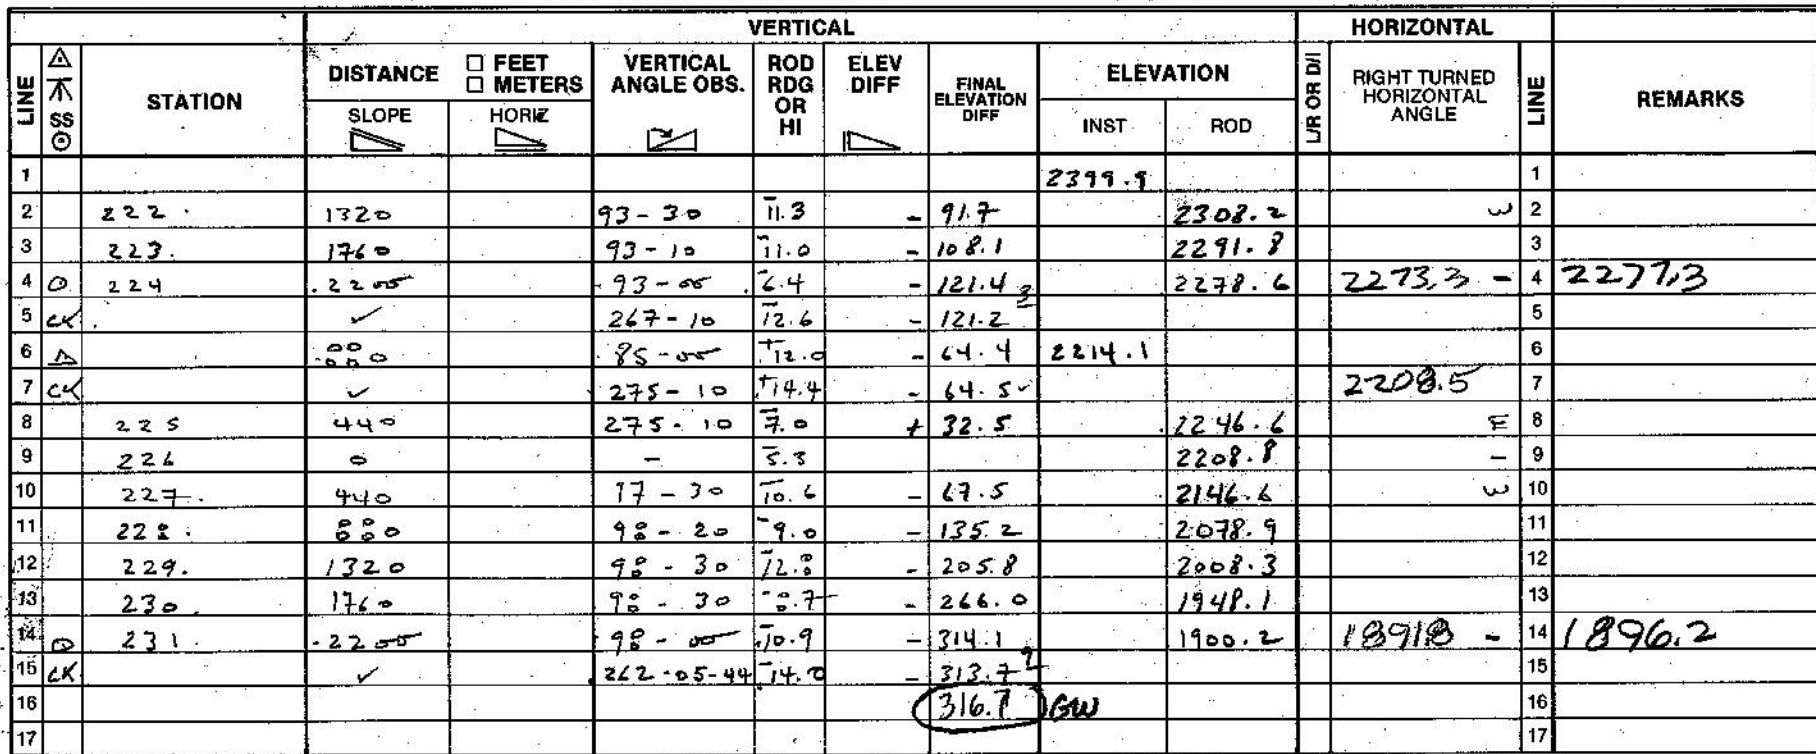 VERTICAL HORIZONTAL
LINE SS STATION DISTANCE □ FEET □ METERS VERTICAL ANGLE OBS. ROD RDG OR HI ELEV DIFF FINAL ELEVATION DIFF ELEVATION L/R OR D/I RIGHT TURNED HORIZONTAL ANGLE LINE REMARKS
SLOPE HORIZ INST ROD
1 2399.9 1
2 222. 1320 93-30 -11.3 - 91.7 2308.2 W 2
3 223. 1760 93-10 -11.0 - 108.1 2291.8 3
4 224 2200 93-00 -6.4 - 121.4 3 2278.6 2273.3 - 4 2277.3
5 CK ✓ 267-10 -12.6 - 121.2 5
6 △ 880 85-00 +12.0 - 64.4 2214.1 6
7 CK ✓ 275-10 +14.4 - 64.5 ✓ 2208.5 7
8 225 440 275-10 -7.0 + 32.5 2246.6 E 8
9 226 0 - -5.3 2208.8 - 9
10 227. 440 -30 -10.6 - 67.5 2146.6 W 10
11 228. 880 98-20 -9.0 - 135.2 2078.9 11
12 229. 1320 98-30 -12.8 - 205.8 2008.3 12
13 230. 1760 98-30 -8.7 - 266.0 1948.1 13
14 231. 2200 98-00 -10.9 - 314.1 1900.2 1891.8 - 14 1896.2
15 CK ✓ 262-05-44 -14.0 - 313.7 15
16 316.7 GW 16
17 17